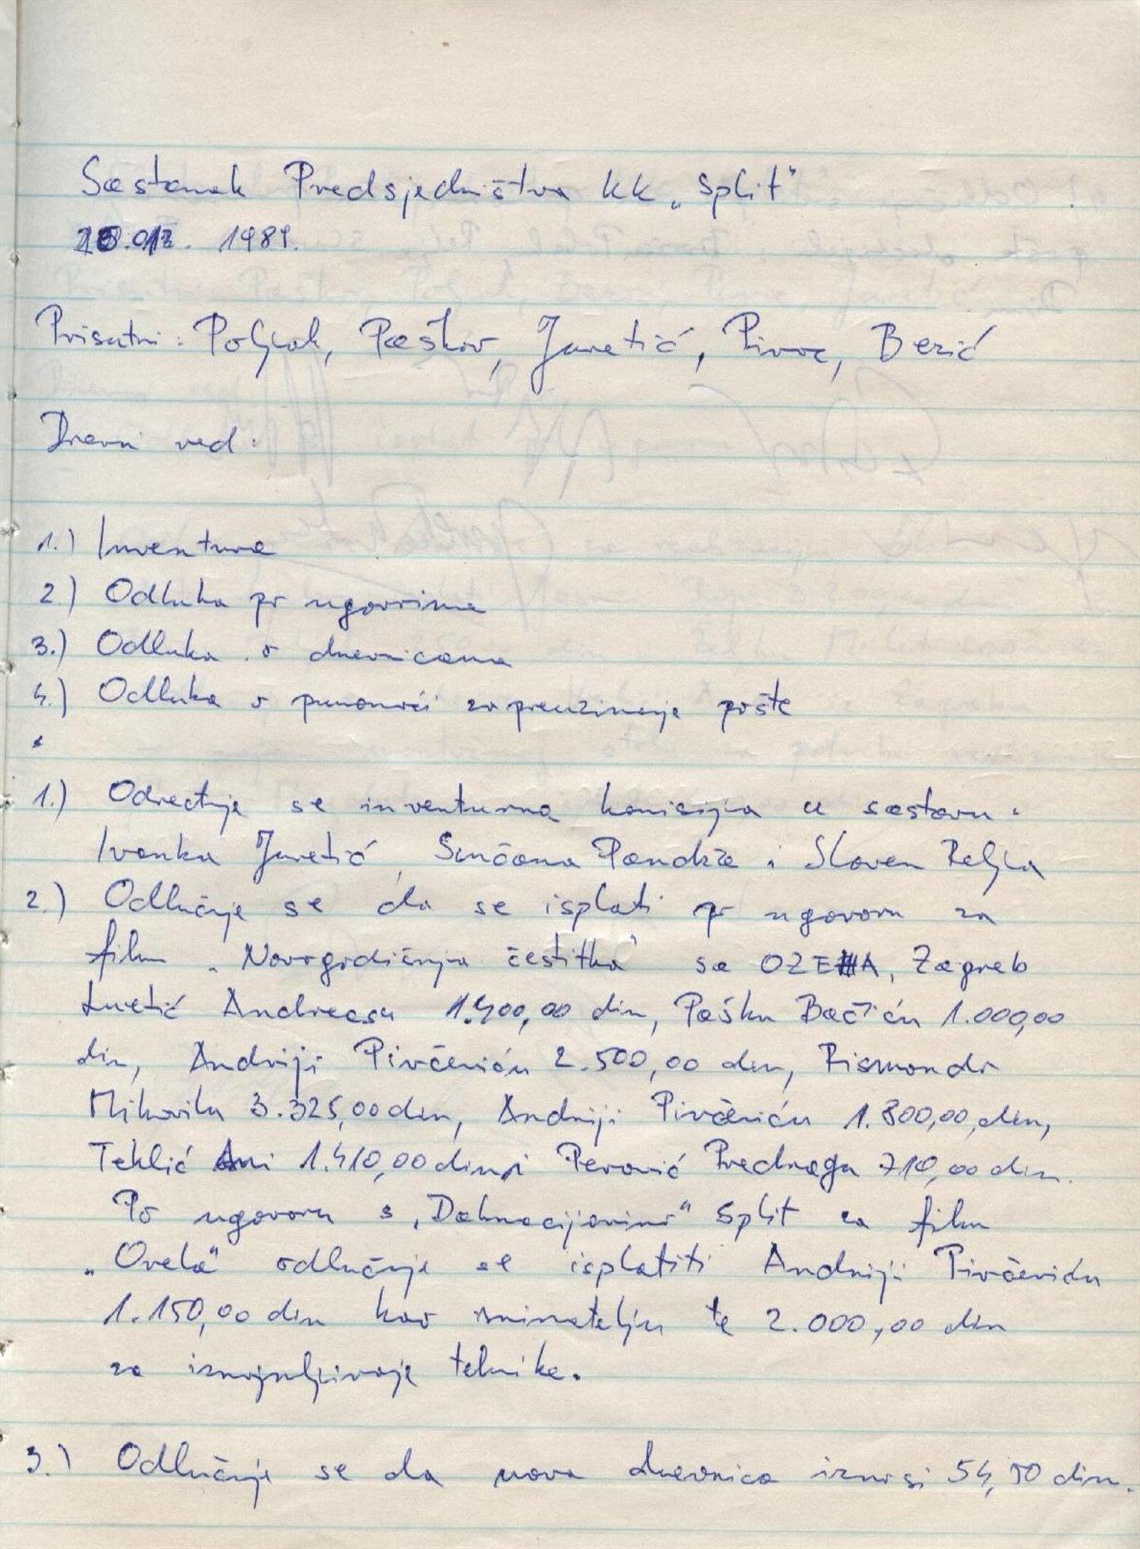 Sastanak Predsjedništva KK „Split"
1989.
Prisutni: Poljak, Paškov, Juretić, Pivac, Bezić
Dnevni red:
1.) Inventura
2.) Odluka po ugovorima
3.) Odluka o dnevnicama
4.) Odluka o punomoći za preuzimanje pošte
1.) Određuje se inventurna komisija u sastavu:
Ivanka Juretić, Sunčana Pandža i Slaven Relja
2.) Odlučuje se da se isplati po ugovoru za
film „Novogodišnja čestitka" sa OZEHA, Zagreb
Luetić Andreasu 1.400,00 din, Pašku Bačiću 1.000,00
din, Andriji Pivčeviću 2.500,00 din, Rismondo
Mihovilu 3.325,00 din, Andriji Pivčeviću 1.800,00 din,
Teklić Ani 1.410,00 din i Perović Predraga 710,00 din.
Po ugovoru s „Dalmacijavino" Split za film
„Ovela" odlučuje se isplatiti Andriji Pivčeviću
1.150,00 din kao snimatelju te 2.000,00 din
za iznajmljivanje tehnike.
3.) Odlučuje se da nova dnevnica iznosi 54,50 din.